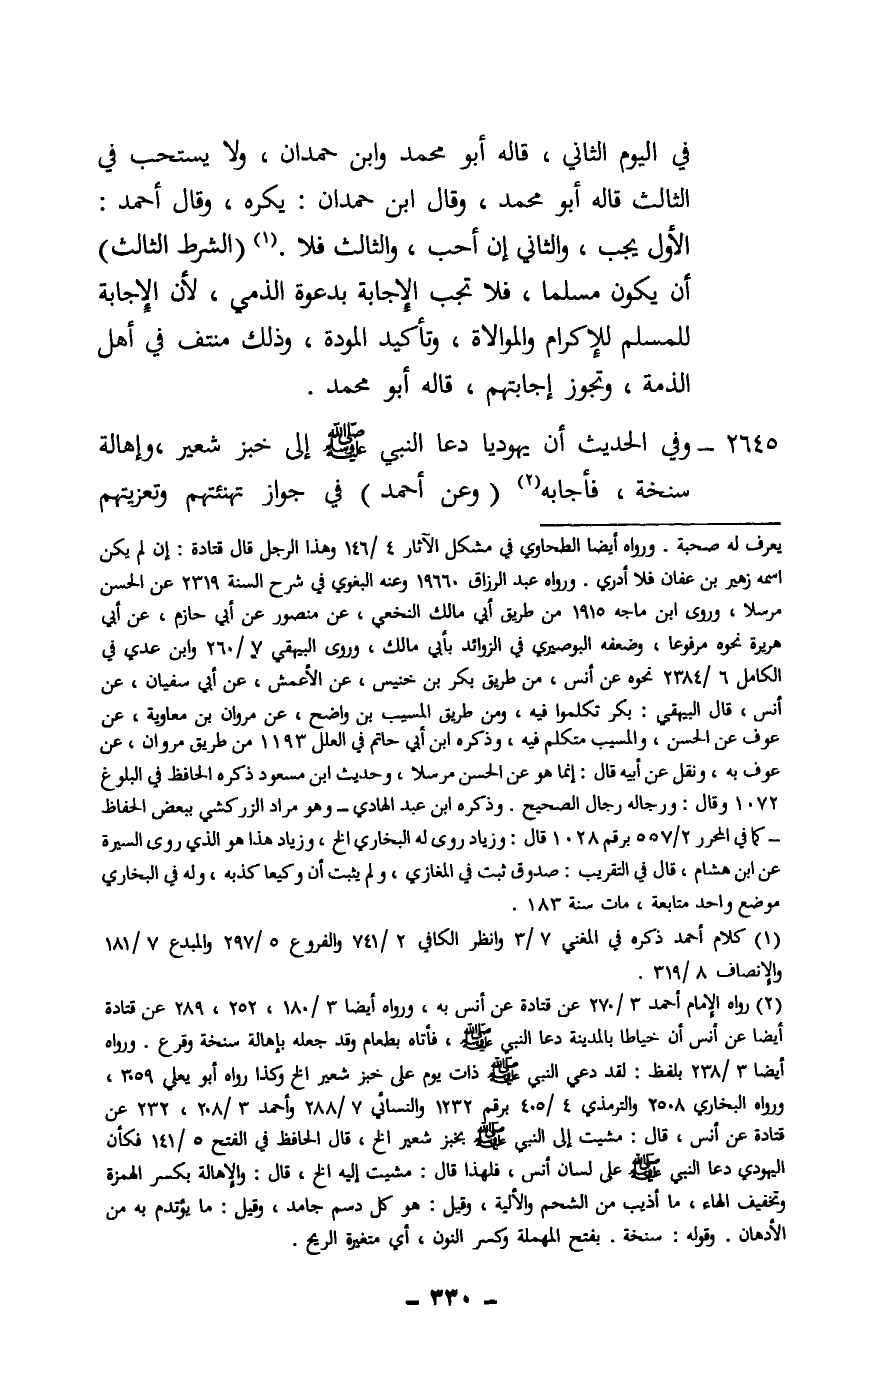 في اليوم الثاني ، قاله أبو محمد وابن حمدان ، ولا يستحب في
الثالث قاله أبو محمد ، وقال ابن حمدان : يكره ، وقال أحمد :
الأول يجب ، والثاني إن أحب ، والثالث فلا .(١) (الشرط الثالث)
أن يكون مسلما ، فلا تجب الإجابة بدعوة الذمي ، لأن الإجابة
للمسلم للإكرام والموالاة ، وتأكيد المودة ، وذلك منتف في أهل
الذمة ، وتجوز إجابتهم ، قاله أبو محمد .
٢٦٤٥ ــ وفي الحديث أن يهوديا دعا النبي ﷺ إلى خبز شعير ،وإهالة
سنخة ، فأجابه(٢) ( وعن أحمد ) في جواز تهنئتهم وتعزيتهم
يعرف له صحبة . ورواه أيضا الطحاوي في مشكل الآثار ٤ /١٤٦ وهذا الرجل قال قتادة : إن لم يكن
اسمه زهير بن عفان فلا أدري . ورواه عبد الرزاق ١٩٦٦٠ وعنه البغوي في شرح السنة ٢٣١٩ عن الحسن
مرسلا ، وروى ابن ماجه ١٩١٥ من طريق أبي مالك النخعي ، عن منصور عن أبي حازم ، عن أبي
هريرة نحوه مرفوعا ، وضعفه البوصيري في الزوائد بأبي مالك ، وروى البيهقي ٧ /٢٦٠ وابن عدي في
الكامل ٦ /٢٣٨٤ نحوه عن أنس ، من طريق بكر بن خنيس ، عن الأعمش ، عن أبي سفيان ، عن
أنس ، قال البيهقي : بكر تكلموا فيه ، ومن طريق المسيب بن واضح ، عن مروان بن معاوية ، عن
عوف عن الحسن ، والمسيب متكلم فيه ، وذكره ابن أبي حاتم في العلل ١١٩٣ من طريق مروان ، عن
عوف به ، ونقل عن أبيه قال : إنما هو عن الحسن مرسلا ، وحديث ابن مسعود ذكره الحافظ في البلوغ
١٠٧٢ وقال : ورجاله رجال الصحيح . وذكره ابن عبد الهادي ــ وهو مراد الزركشي ببعض الحفاظ
ــ كما في المحرر ٥٥٧/٢ برقم ١٠٢٨ قال : وزياد روى له البخاري الخ ، وزياد هذا هو الذي روى السيرة
عن ابن هشام ، قال في التقريب : صدوق ثبت في المغازي ، ولم يثبت أن وكيعا كذبه ، وله في البخاري
موضع واحد متابعة ، مات سنة ١٨٣ .
(١) كلام أحمد ذكره في المغني ٧ /٣ وانظر الكافي ٢ /٧٤١ والفروع ٥ /٢٩٧ والمبدع ٧ /١٨١
والإنصاف ٨ /٣١٩ .
(٢) رواه الإمام أحمد ٣ /٢٧٠ عن قتادة عن أنس به ، ورواه أيضا ٣ /١٨٠ ، ٢٥٢ ، ٢٨٩ عن قتادة
أيضا عن أنس أن خياطا بالمدينة دعا النبي ﷺ ، فأتاه بطعام وقد جعله بإهالة سنخة وقرع . ورواه
أيضا ٣ /٢٣٨ بلفظ : لقد دعي النبي ﷺ ذات يوم على خبز شعير الخ وكذا رواه أبو يعلي ٣٠٥٩ ،
ورواه البخاري ٢٥٠٨ والترمذي ٤ /٤٠٥ برقم ١٢٣٢ والنسائي ٧ /٢٨٨ وأحمد ٣ /٢٠٨ ، ٢٣٢ عن
قتادة عن أنس ، قال : مشيت إلى النبي ﷺ بخبز شعير الخ ، قال الحافظ في الفتح ٥ /١٤١ فكأن
اليهودي دعا النبي ﷺ على لسان أنس ، فلهذا قال : مشيت إليه الخ ، قال : والإهالة بكسر الهمزة
وتخفيف الهاء ، ما أذيب من الشحم والألية ، وقيل : هو كل دسم جامد ، وقيل : ما يؤتدم به من
الأدهان . وقوله : سنخة . بفتح المهملة وكسر النون ، أي متغيرة الريح .
ــ ٣٣٠ ــ